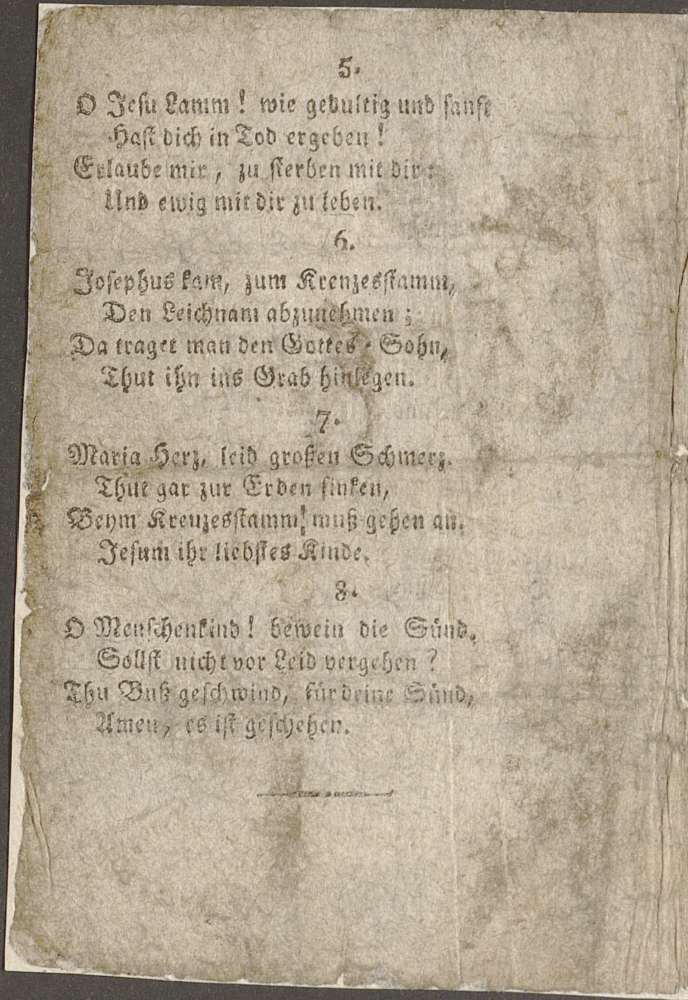 5.
O Jesu Lamm ! wie gedultig und sanft
Hast dich in Tod ergeben !
Erlaube mir , zu sterben mit dir :
Und ewig mit dir zu leben.
6.
Josephus kam, zum Kreuzesstamm,
Den Leichnam abzunehmen ;
Da traget man den Gottes-Sohn,
Thut ihn ins Grab hinlegen.
7.
Maria Herz, leid großen Schmerz.
Thut gar zur Erden sinken,
Beym Kreuzesstamm! muß gehen an.
Jesum ihr liebstes Kinde.
8.
O Menschenkind ! bewein die Sünd,
Sollst nicht vor Leid vergehen ?
Thu Buß geschwind, für deine Sünd,
Amen, es ist geschehen.